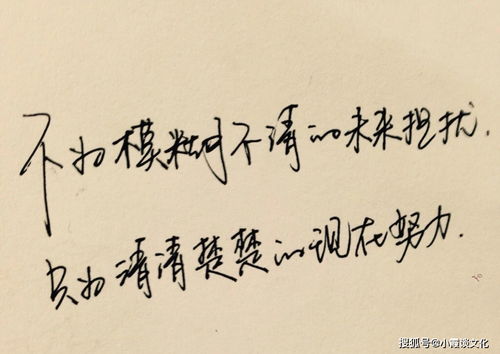 不为模糊不清的未来担扰.
只为清清楚楚的现在努力.
搜狐号@小霞谈文化